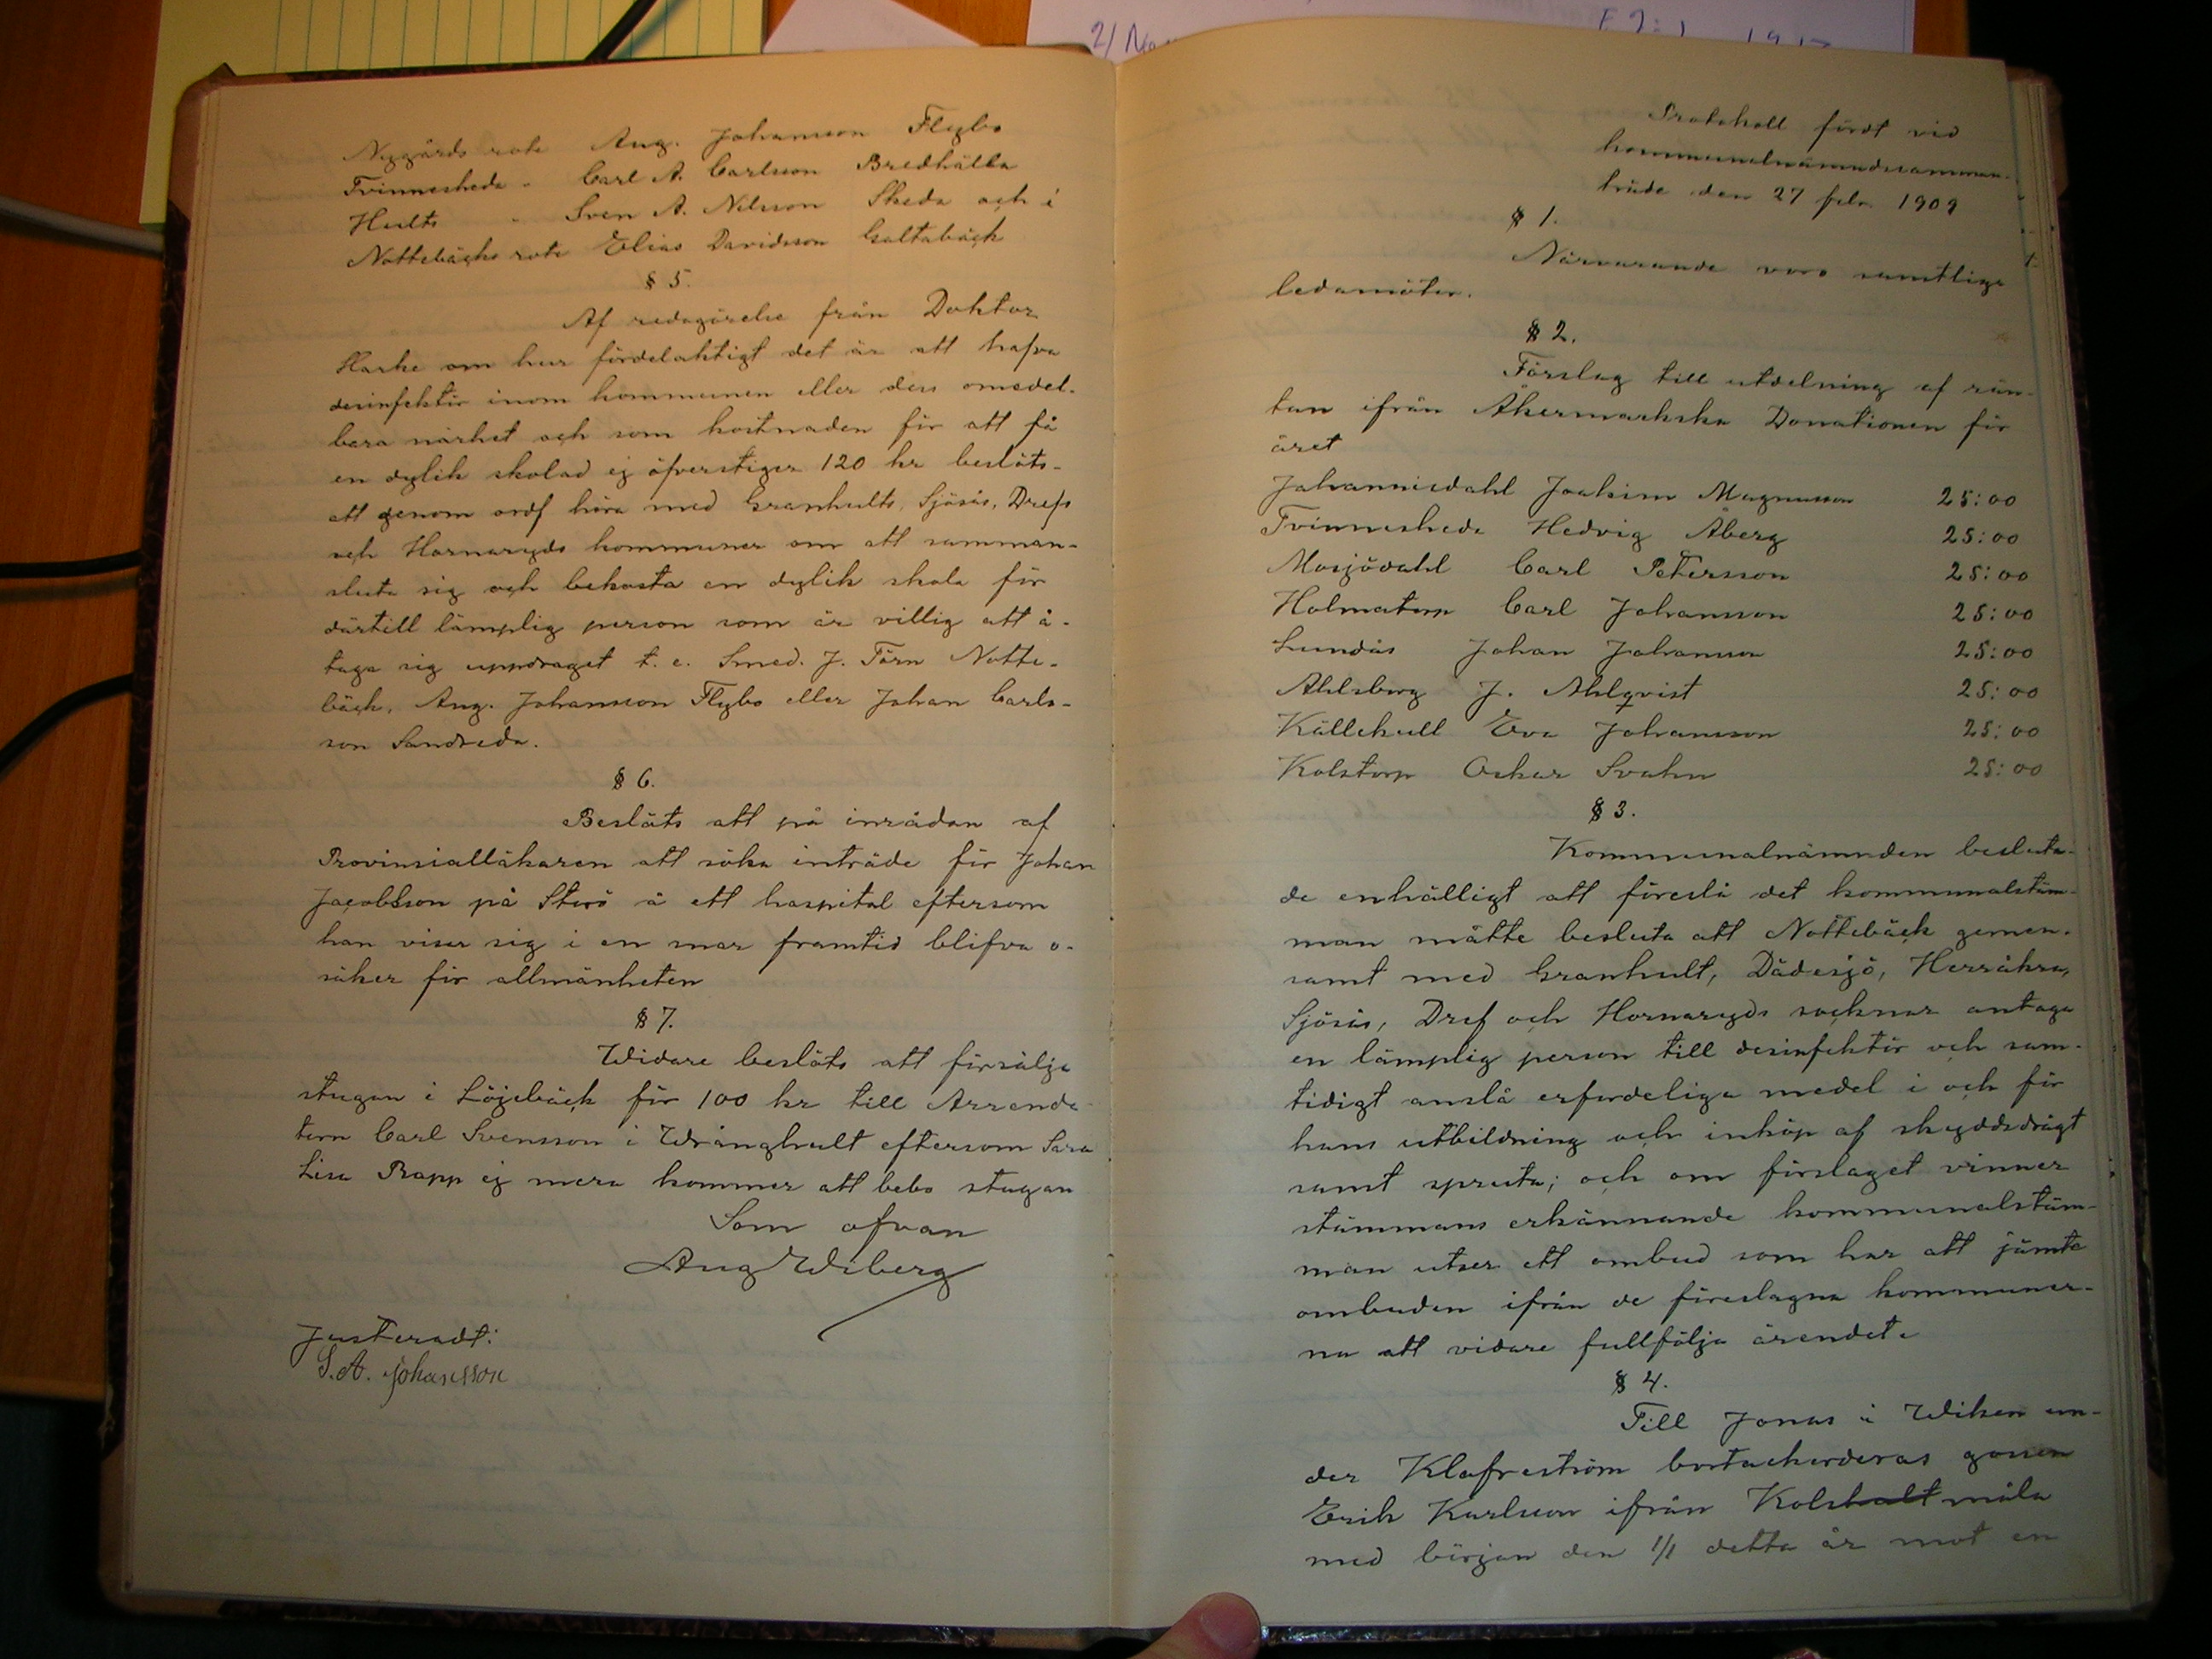 Nygårds rote Aug. Johansson Flybo
Tvinnesheda " Carl A. Carlsson Bredhälla
Hults " Sven A. Nilsson Sheda och i
Nottebäcks rote Elias Davidsson Galtabäck
§ 5.
Af redogörelse från Doktor
om hur fördelaktigt det är att hafva
desinfektör inom kommunen eller dess omedel-
bara närhet och som kostnaden för att få
en dylik skolad ej öfverstiger 120 kr beslöts
att genom ordf höra med Granhults, Sjösås, Drefs
och Hornaryds kommuner om att samman-
sluta sig och bekosta en dylik skola för
därtill lämplig person som är villig att å-
taga sig uppdraget t. e. Smed. J. Törn Notte-
bäck, Aug. Johansson Flybo eller Johan Carls-
son Sandreda.
§ 6.
Beslöts att på inrådan af
Provinsialläkaren att söka inträde för Johan
Jacobsson på å ett hospital eftersom
han visar sig i en snar framtid blifva o-
säker för allmänheten
§ 7.
Widare beslöts att försälja
stugan i Löjebäck för 100 kr till Arrenda
torn Carl Svensson i Wrånghult eftersom Sara
Lisa Rapp ej mera kommer att bebo stugan
Som ofvan
Aug Wiberg
Justeradt:
S. A. Johansson
2/
Protokoll fördt vid
kommunalnämndssamman-
träde den 27 febr 1909
§ 1.
Närvarande voro samtliga
ledamöter.
§ 2.
Förslag till utdelning af rän-
tan ifrån Åkermarkska Donationen för
året
Johannisdahl Joakim Magnusson 25:00
Tvinnesheda Hedvig Åberg 25:00
Mosjödahl Carl Petersson 25:00
Holmatorp Carl Johansson 25:00
Lundås Johan Johansson 25:00
Ahlsborg J. Ahlqvist 25:00
Källekull Eva Johansson 25:00
Kolstorp Oskar Svahn 25:00
§ 3.
Kommunalnämnden besluta-
de enhälligt att föreslå det kommunalstäm-
man måtte besluta att Nottebäck gemen-
samt med Granhult, Dädesjö, Herråkra,
Sjösås, Dref och Hornaryds socknar antaga
en lämplig person till desinfektör och sam-
tidigt anslå erforderliga medel i och för
hans utbildning och inköp af skyddsdrägt
samt spruta; och om förslaget vinner
stämmans erkännande kommunalstäm-
man utser ett ombud som har att jämte
ombuden ifrån de föreslagna kommuner-
na att vidare fullfölja ärendet.
§ 4.
Till Jonas i Wiken un-
der Klafreström bortackorderas gossen
Erik Karlsson ifrån Kolshult måla
med början den 1/1 detta år mot en